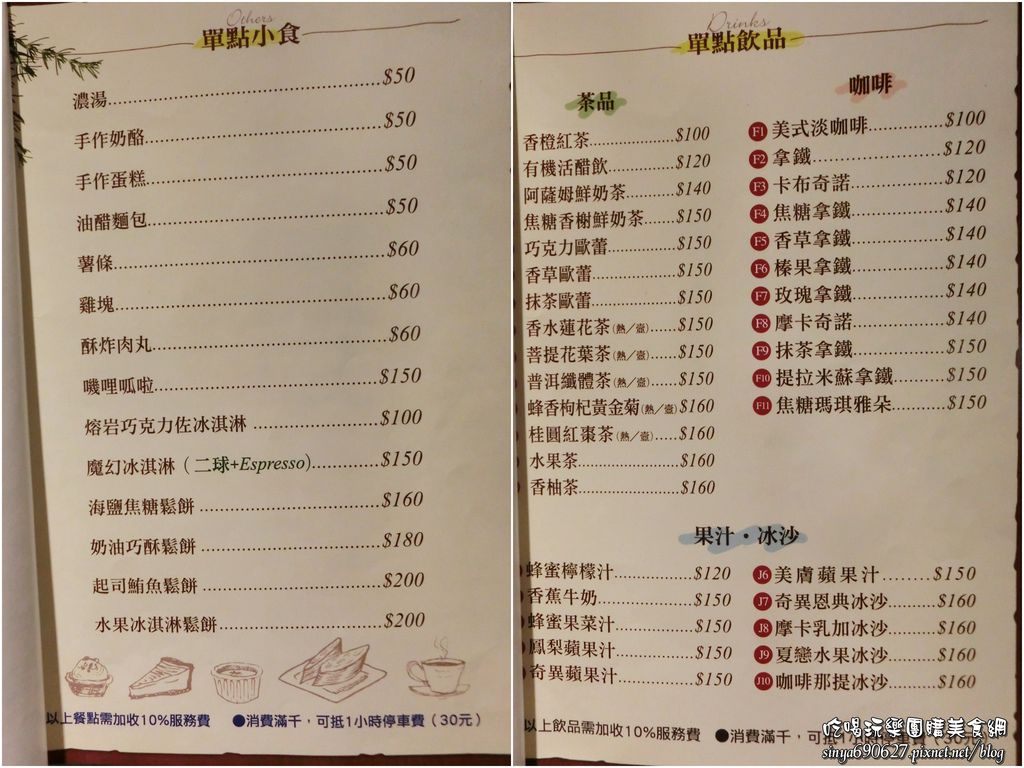 Others
單點小食
濃湯 $50
手作奶酪 $50
手作蛋糕 $50
油醋麵包 $50
薯條 $60
雞塊 $60
酥炸肉丸 $60
嘰哩呱啦 $150
熔岩巧克力佐冰淇淋 $100
魔幻冰淇淋（二球+Espresso) $150
海鹽焦糖鬆餅 $160
奶油巧酥鬆餅 $180
起司鮪魚鬆餅 $200
水果冰淇淋鬆餅 $200
以上餐點需加收10%服務費 ●消費滿千，可抵1小時停車費（30元）
Drinks
單點飲品
茶品
香橙紅茶 $100
有機活醋飲 $120
阿薩姆鮮奶茶 $140
焦糖香榭鮮奶茶 $150
巧克力歐蕾 $150
香草歐蕾 $150
抹茶歐蕾 $150
香水蓮花茶(熱／壺) $150
菩提花葉茶(熱／壺) $150
普洱纖體茶(熱／壺) $150
蜂香枸杞黃金菊(熱／壺) $160
桂圓紅棗茶(熱／壺) $160
水果茶 $160
香柚茶 $160
咖啡
F1 美式淡咖啡 $100
F2 拿鐵 $120
F3 卡布奇諾 $120
F4 焦糖拿鐵 $140
F5 香草拿鐵 $140
F6 榛果拿鐵 $140
F7 玫瑰拿鐵 $140
F8 摩卡奇諾 $140
F9 抹茶拿鐵 $150
F10 提拉米蘇拿鐵 $150
F11 焦糖瑪琪雅朵 $150
果汁・冰沙
蜂蜜檸檬汁 $120
香蕉牛奶 $150
蜂蜜果菜汁 $150
鳳梨蘋果汁 $150
奇異蘋果汁 $150
J6 美膚蘋果汁 $150
J7 奇異恩典冰沙 $160
J8 摩卡乳加冰沙 $160
J9 夏戀水果冰沙 $160
J10 咖啡那提冰沙 $160
以上飲品需加收10%服務費 ●消費滿千，可
吃喝玩樂團購美食網
sinya690627.pixnet.net/blog